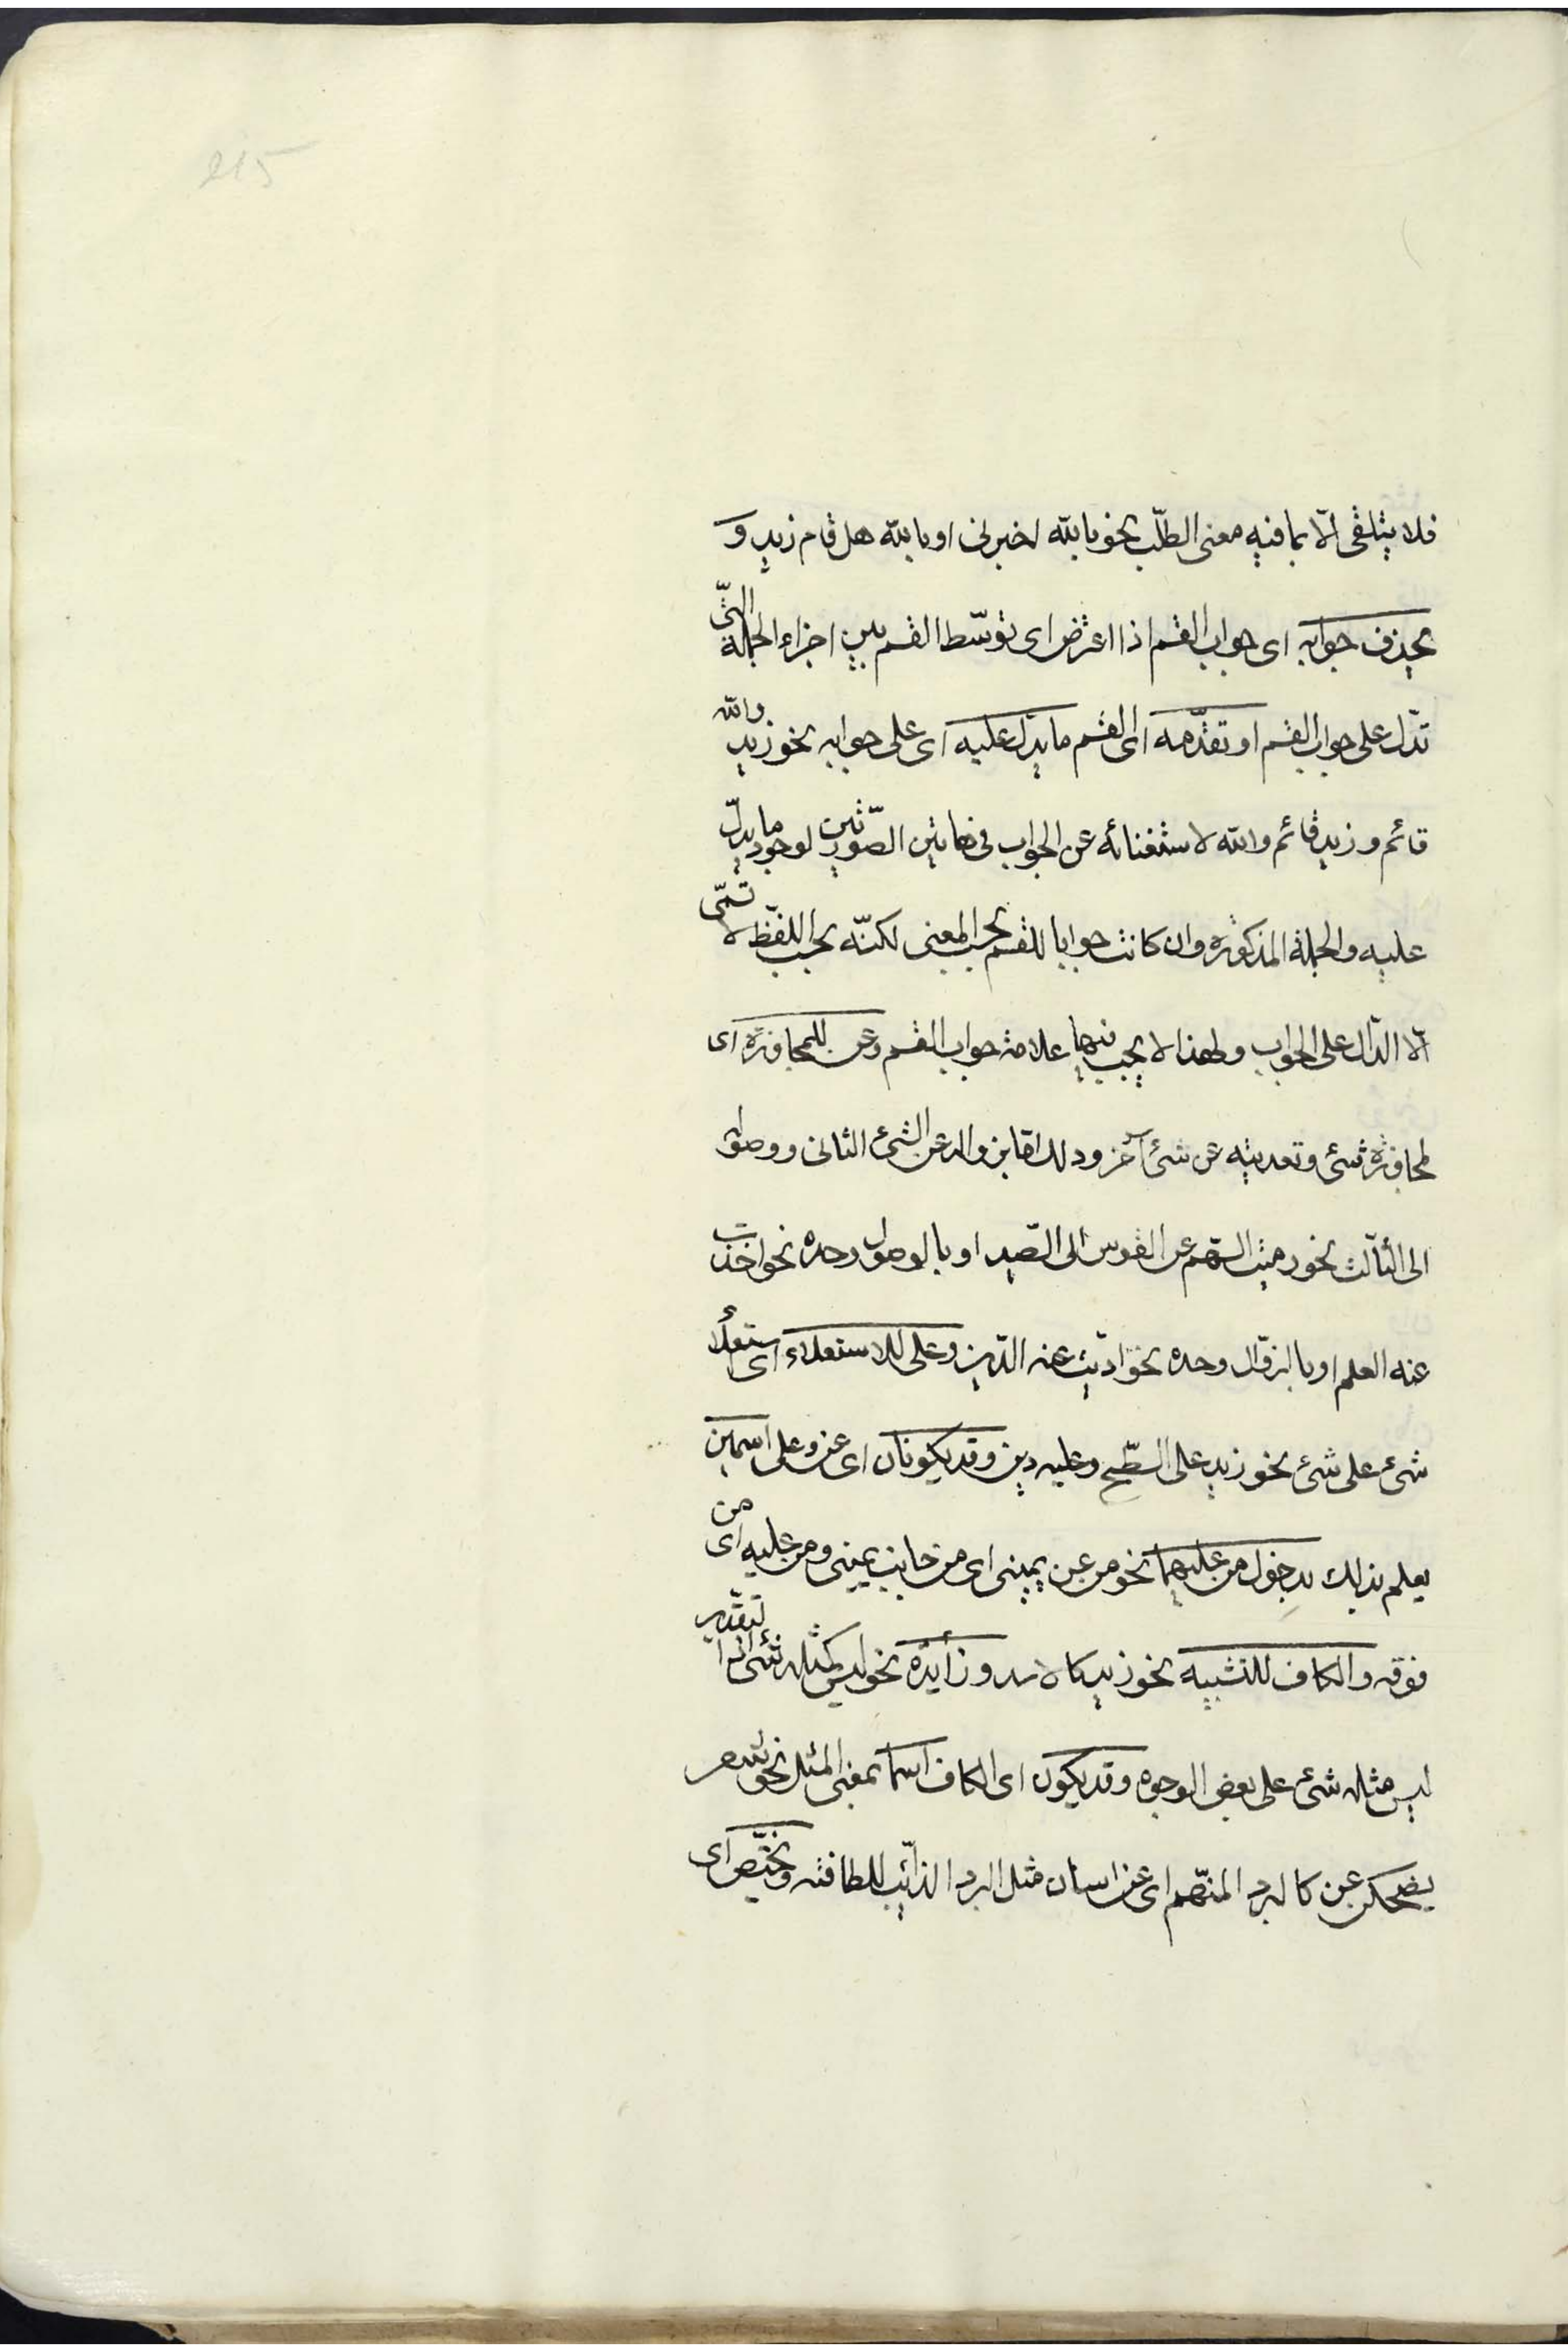 215
فلا يتلقى الّا بما فيه معنى الطّلب نحو بالله اخبرنى او بالله هل قام زيد و
يحذف جوابه اى جواب القسم اذا اعترض اى توسّط القسم بين اجزاء الجملة الّتى
تدلّ على جواب القسم او تقدّمه اى القسم ما يدل عليه اى على جوابه نحو زيد والله
قائم و زيد قائم والله لاستغنائه عن الجواب فى هاتين الصّورتين لوجود ما يدلّ
عليه والجملة المذكورة وان كانت جوابا للقسم بحسب المعنى لكنّه بحسب اللفظ لا تسمّى
الّا الدّال على الجواب ولهذا لا يجب فيها علامة جواب القسم وعن للمجاوزة اى
لمجاوزة شئ وتعديته عن شئ آخر وذلك امّا بزواله عن الشئ الثانى ووصوله
الى الثّالث نحو رميت السّهم عن القوس الى الصّيد او بالوصول وحده نحو اخذت
عنه العلم او بالزوّال وحده نحو ادّيت عنه الدّين وعلى للاستعلاء اى استعلاء
شئ على شئ نحو زيد على السّطح وعليه دين وقد يكونان اى عن وعلى اسمين
يعلم ذلك بدخول من عليهما نحو من عن يمينى اى من جانب يمينى ومن عليه اى من
فوقه والكاف للتشبيه نحو زيد كالاسد وزائدة نحو ليس كمثله شئ اذا لتقدير
ليس مثله شئ على بعض الوجوه وقد يكون اى الكاف اسما بمعنى المثل نحو شعر
يضحكن عن كالبرد المنهّم اى عن اسنان مثل البرد الذائب للطافته وتختّص اى